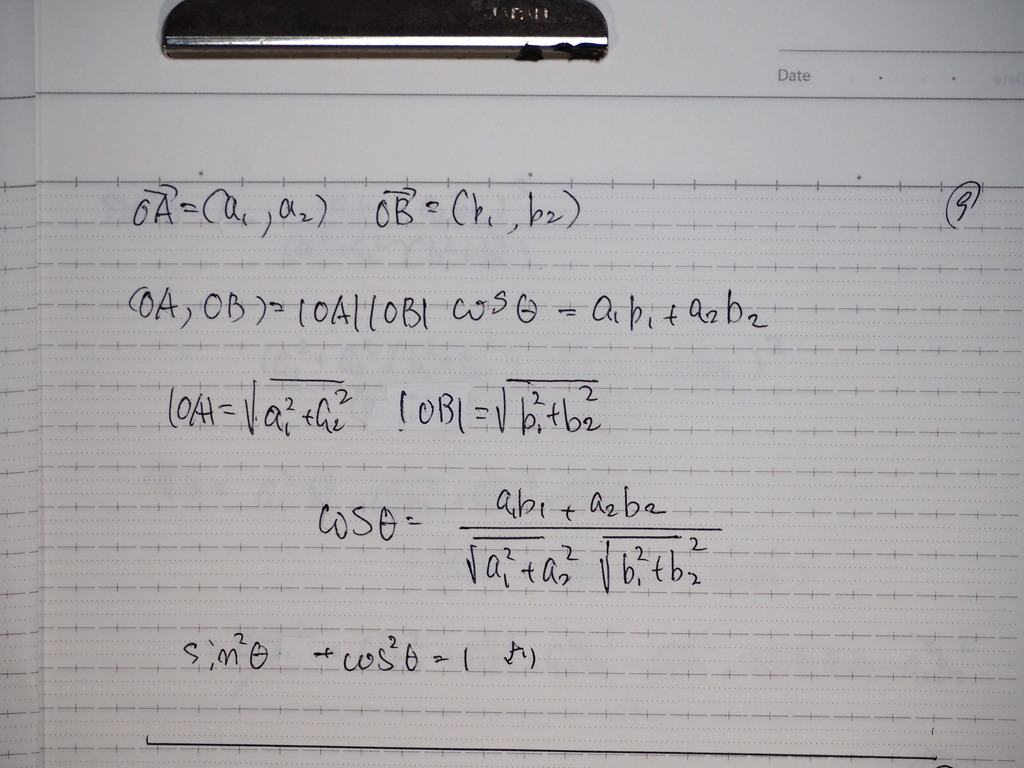 JAPAN
Date
OA⃗=(a₁, a₂) OB⃗=(b₁, b₂)
⑨
(OA, OB)=|OA||OB| cosθ = a₁b₁+a₂b₂
|OA|=√(a₁²+a₂²) |OB|=√(b₁²+b₂²)
cosθ= (a₁b₁+a₂b₂)/(√(a₁²+a₂²) √(b₁²+b₂²))
sin²θ +cos²θ=1 より